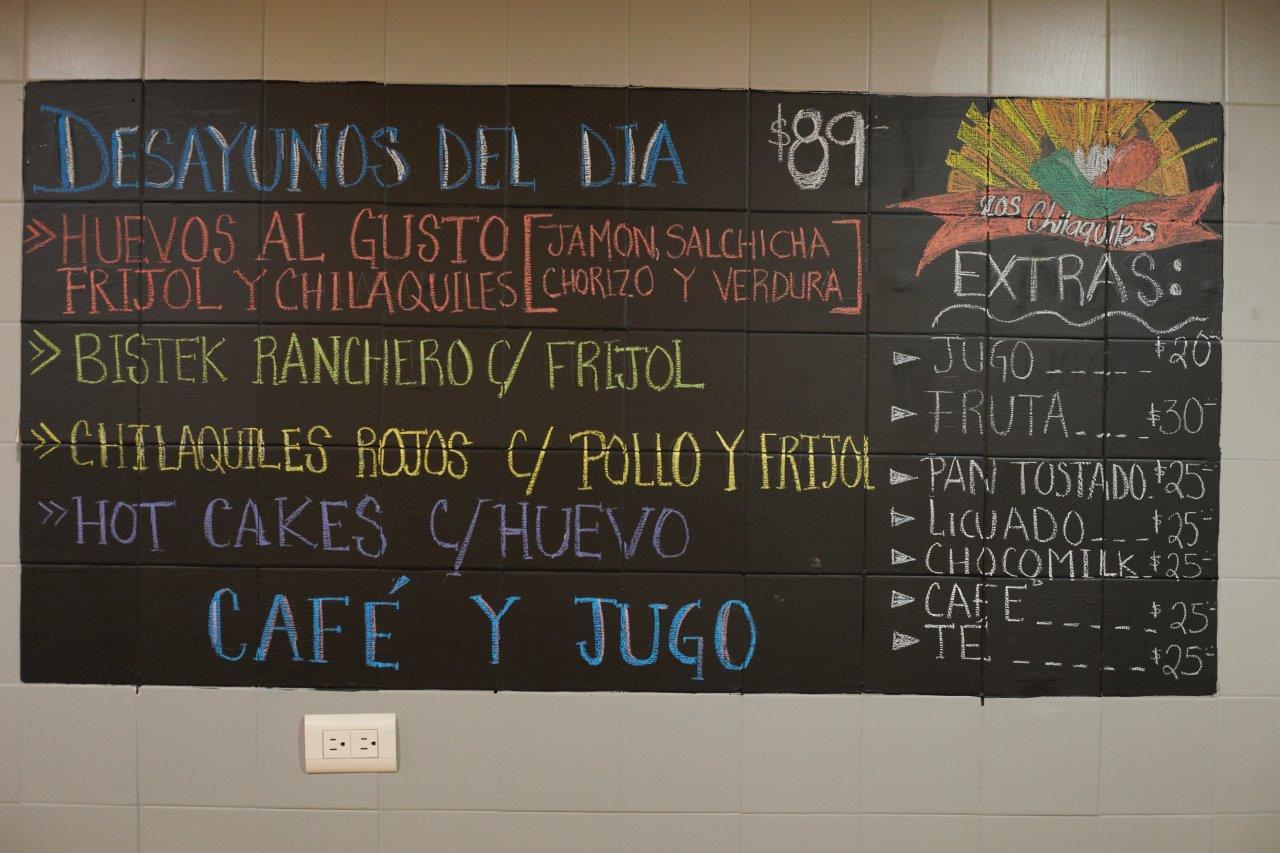 DESAYUNOS DEL DIA $89-
» HUEVOS AL GUSTO [JAMON, SALCHICHA
FRIJOL Y CHILAQUILES CHORIZO Y VERDURA]
» BISTEK RANCHERO C/ FRIJOL
» CHILAQUILES ROJOS C/ POLLO Y FRIJOL
» HOT CAKES C/ HUEVO
CAFÉ Y JUGO
LOS Chilaquiles
EXTRAS:
JUGO _ _ _ _ _ $20-
FRUTA _ _ _ _ $30-
PAN TOSTADO. $25-
LICUADO _ _ _ $25-
CHOCOMILK _ $25-
CAFÉ _ _ _ _ _ $25-
TÉ _ _ _ _ _ $25-